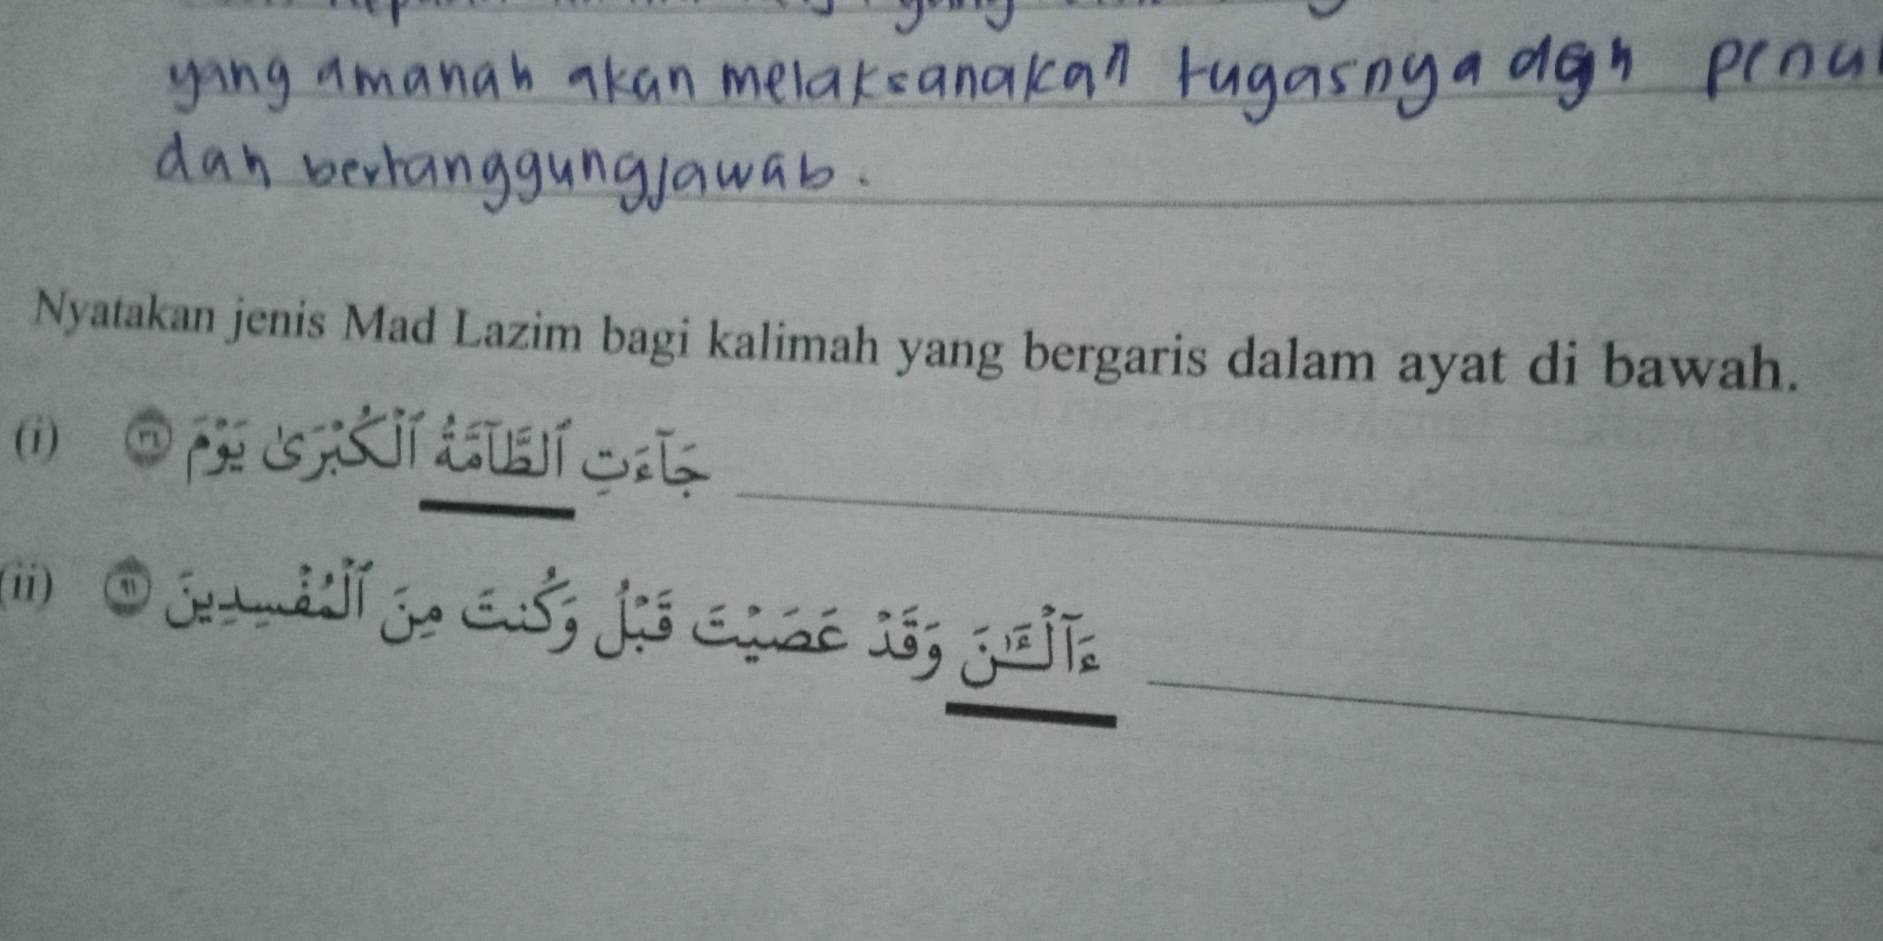 yang amanah akan melaksanakan tugasnya dgn penu
dan bertanggungjawab.
Nyatakan jenis Mad Lazim bagi kalimah yang bergaris dalam ayat di bawah.
(i) جَآءَتِ ٱلطَّآمَّةُ ٱلْكُبْرَىٰ يَوْمَ ٣٤
(ii) ءَآلْـَٰٔنَ وَقَدْ عَصَيْتَ قَبْلُ وَكُنتَ مِنَ ٱلْمُفْسِدِينَ ٩١